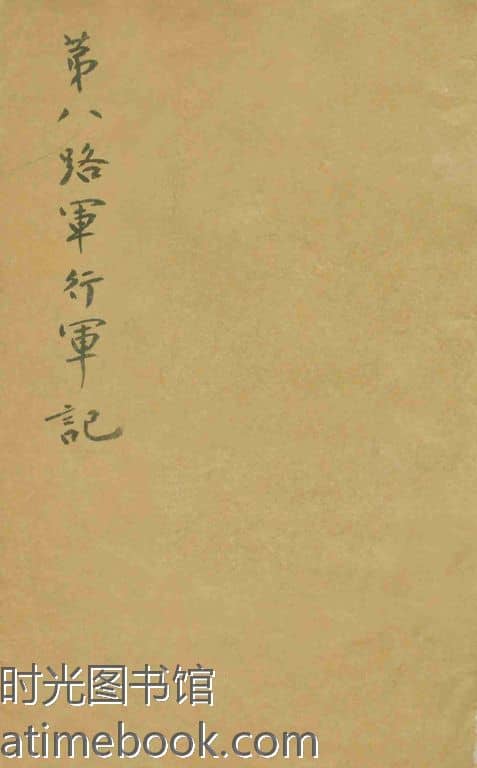 第八路軍行軍記
时光图书馆
atimebook.com